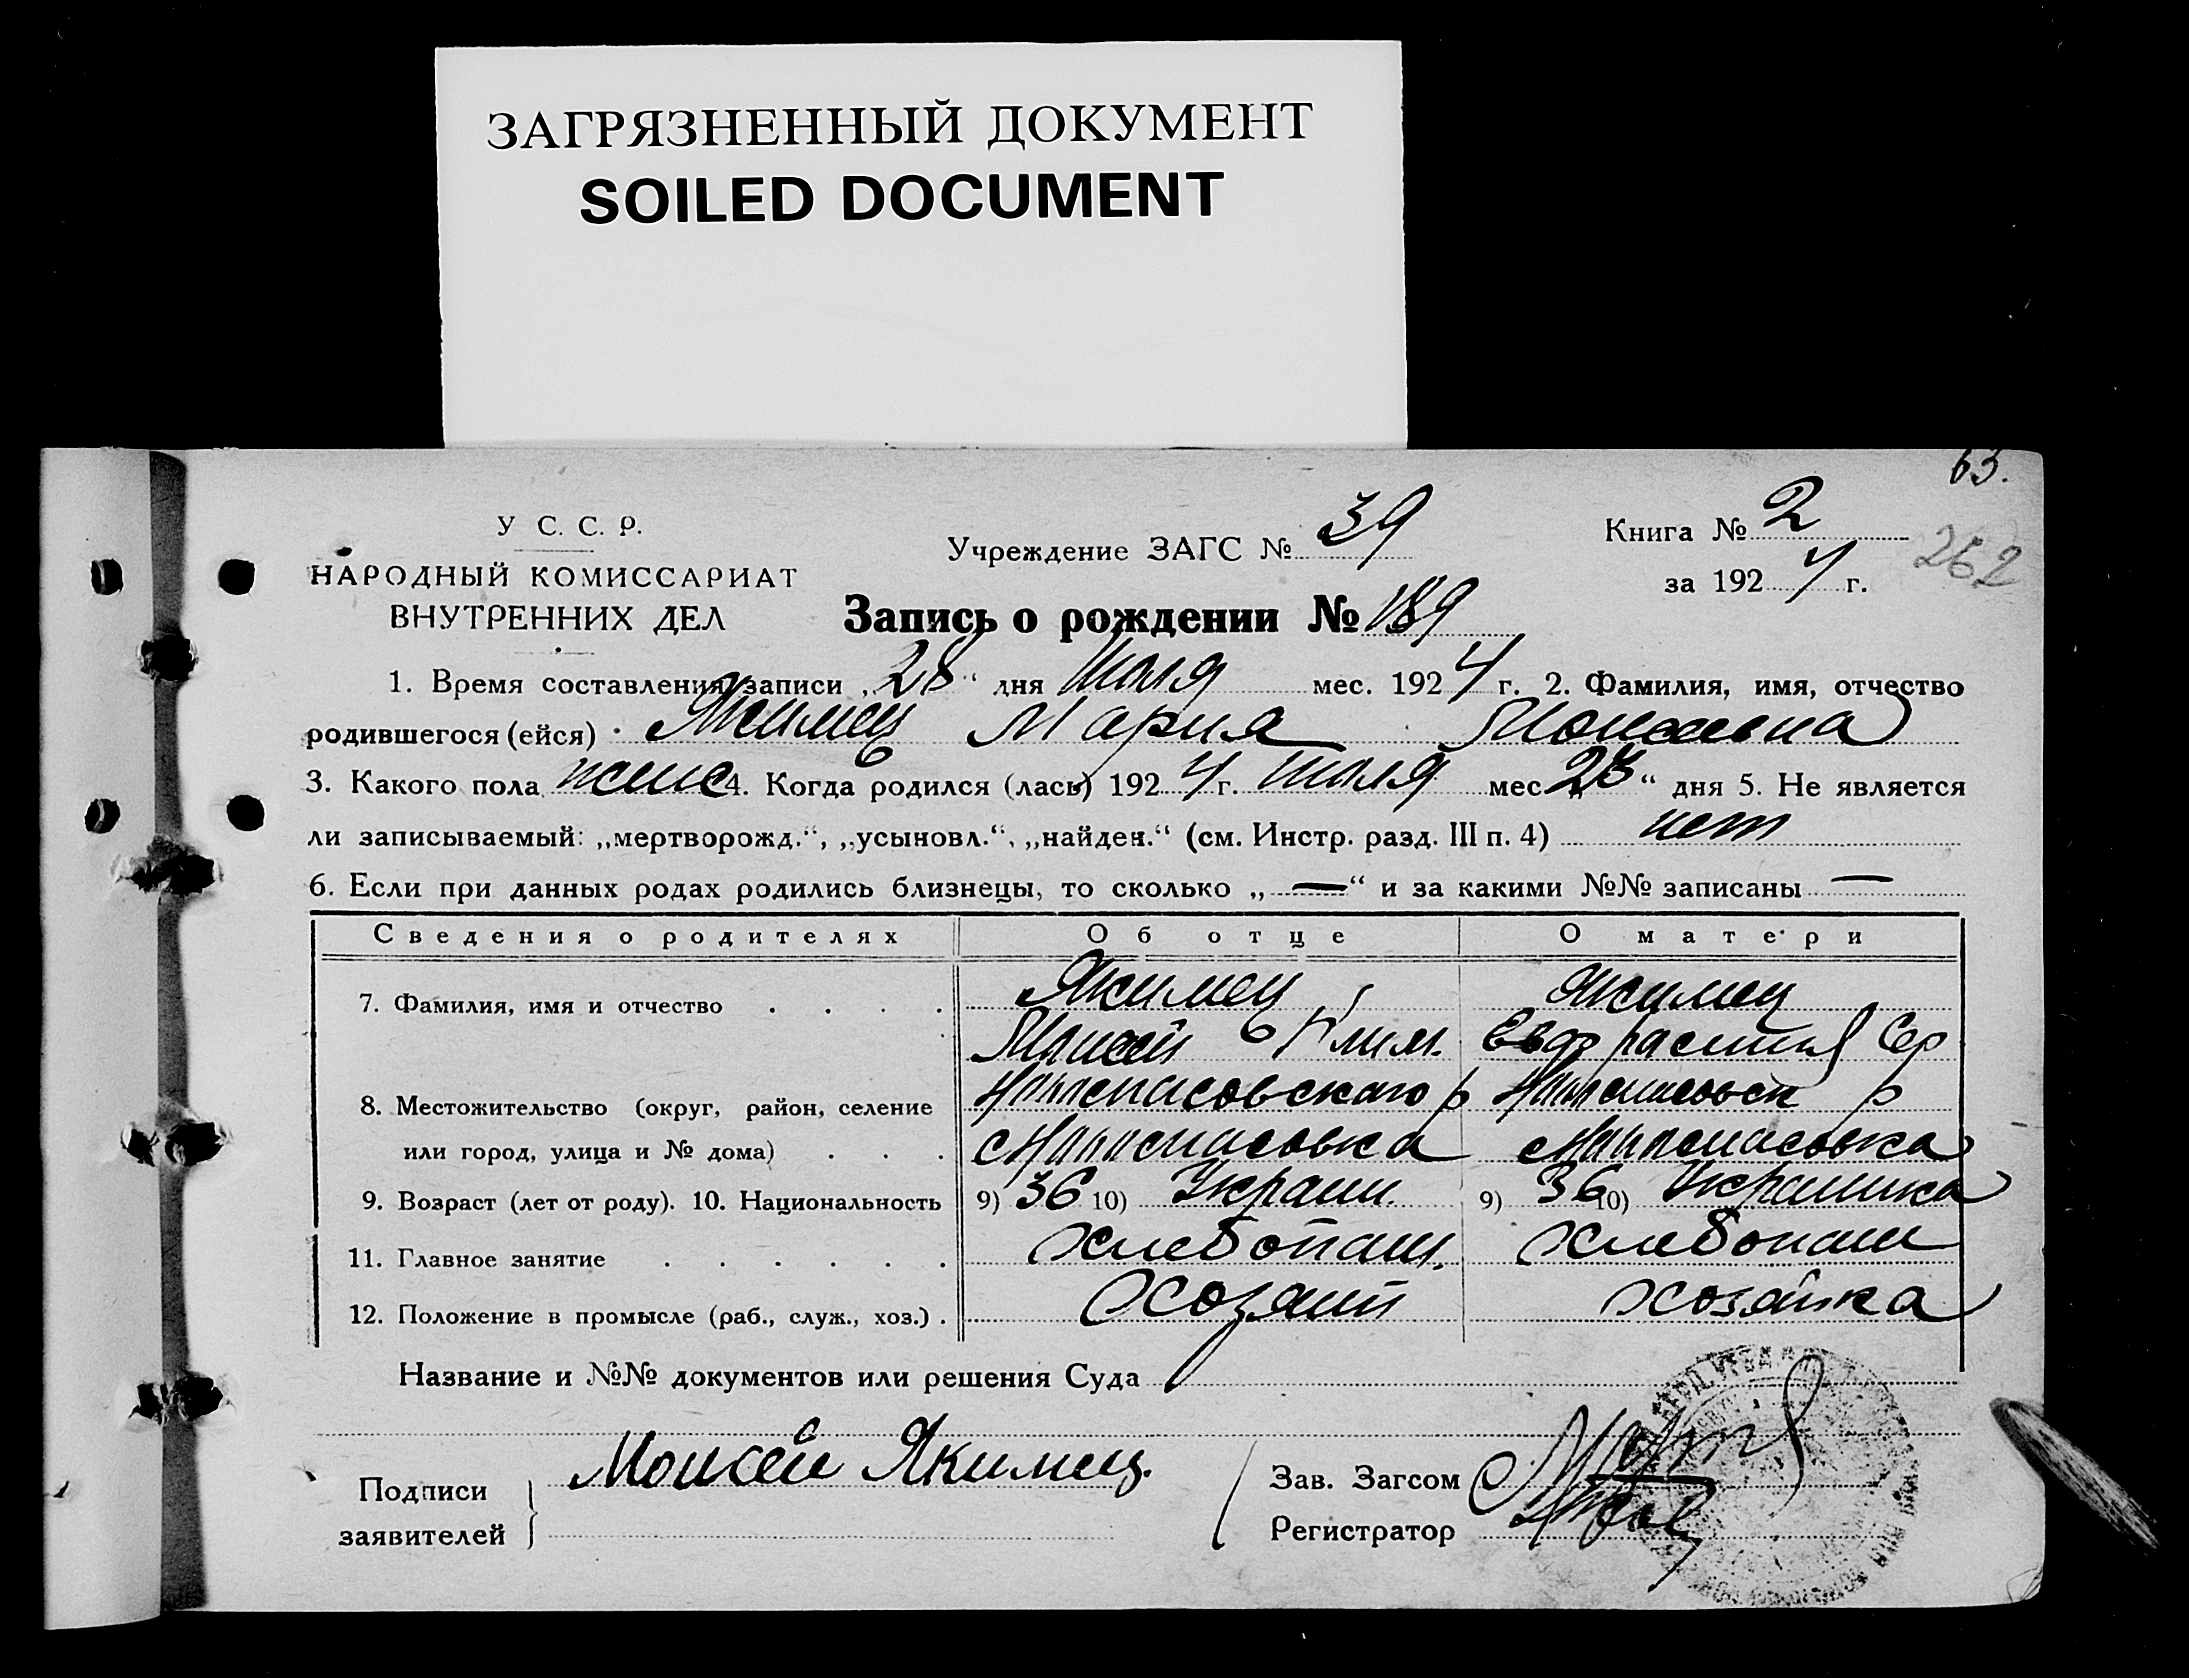 ЗАГРЯЗНЕННЫЙ ДОКУМЕНТ
SOILED DOCUMENT
63.
У С. С. Р.
НАРОДНЫЙ КОМИССАРИАТ
ВНУТРЕННИХ ДЕЛ
Учреждение ЗАГС № 39
Книга № 2
за 1924 г.
262
Запись о рождении № 189
1. Время составления записи „28“ дня Июля мес. 1924 г. 2. Фамилия, имя, отчество
родившегося (ейся) Якимец Мария Моисеевна
3. Какого пола женс 4. Когда родился (лась) 1924 г. июля мес „28“ дня 5. Не является
ли записываемый: „мертворожд.“, „усыновл.“, „найден.“ (см. Инстр. разд. III п. 4) нет
6. Если при данных родах родились близнецы, то сколько „—“ и за какими №№ записаны —
Сведения о родителях Об отце О матери
7. Фамилия, имя и отчество . . . . Якимец Якимец
Моисей Клим. Евфрасиния Сер
8. Местожительство (округ, район, селение Новоспасовскаго р Новоспасовск р
или город, улица и № дома) . . . с Новоспасовка с Новоспасовка
9. Возраст (лет от роду). 10. Национальность 9) 36 10) Украин. 9) 36 10) Украинка
11. Главное занятие . . . . . . Хлебопаш. Хлебопаш
12. Положение в промысле (раб., служ., хоз.) . Хозяин хозяйка
Название и №№ документов или решения Суда
Подписи
заявителей
Моисей Якимец.
Зав. Загсом
Регистратор